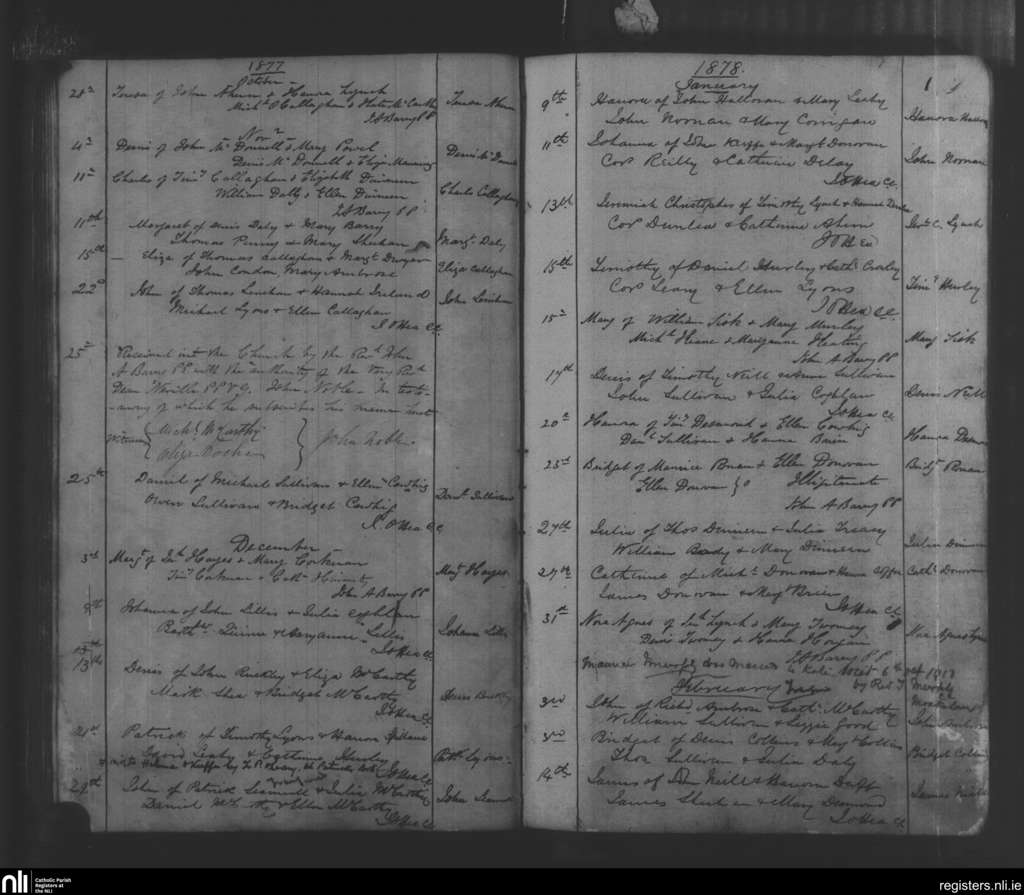 1877
October
28th Teresa of John Ahern & Hanora Lynch
Michl O'Callaghan & Kate McCarthy Teresa Ahern
JABarry PP
Novr
4th Denis of John McDonnell & Mary Power
Denis McDonnell & Eliza Denis McDonnell
11th Charles of Timy Callaghan & Elizabeth Dinneen
William Daly & Ellen Dinneen Charles Callaghan
JABarry PP
11th Margaret of Denis Daly & Mary Barry
Thomas Penny & Mary Sheehan Margt Daly
15th Eliza of Thomas Callaghan & Margt Dwyer
John Condon, Mary Ambrose Eliza Callaghan
22d John of Thomas Linehan & Hannah Ireland
Michael Lyons & Ellen Callaghan John Linehan
J O'Hea CC
25th Received into the Church by the Revd John
A Barry PP with the authority of the Very Revd
Dean Neville PPVG. John Noble - In testi-
-mony of which he subscribes his name here
Witnesses Michl McCarthy John Noble
Eliza
25th Daniel of Michael Sullivan & Ellen Costhig
Owen Sullivan & Bridget Costhig Danl Sullivan
J. O'Hea CC
December
3rd Mary of Jn Hayes & Mary Corkeran
Timy Corkeran & Cath Mary Hayes
John A Barry PP
8th Johanna of John Lillis & Julia Coghlan
Bartw & Maryanne Lillis Johanna Lillis
JO'Hea CC
13th
13th Denis of John Buckley & Eliza McCarthy
Mark Shea & Bridget McCarthy Denis Buckley
JO'Hea CC
21st Patrick of Timothy Lyons & Hanora
David Leahy & Catherine Hurley Patk Lyons
JO'Hea CC
29th John of Patrick & Julia McCarthy
Daniel McCarthy & Ellen McCarthy John
JO'Hea CC
1878.
January
1
9th Hanora of John Halloran & Mary Leahy
John Noonan & Mary Corrigan Hanora Halloran
11th Johanna of John Keeffe & Margt Donovan
Cors Reilly & Catherine Delay John Noonan
JO'Hea CC
13th Jeremiah Christopher of Timothy Lynch & Hannah
Cors Dunlea & Catherine Ahern Jerh C. Lynch
J O'Hea
15th Timothy of Daniel Hurley & Cathe Crowley
Cors Leary & Ellen Lyons Timy Hurley
J O'Hea CC
15th Mary of William Sisk & Mary Hurley
Michl & Maryanne Mary Sisk
John A Barry PP
17th Denis of Timothy Neill & Anne Sullivan
John Sullivan & Julia Coghlan Denis Neill
JO'Hea CC
20th Hanora of Timy Desmond & Ellen Costhig
Danl Sullivan & Hanna Hanora Desmond
25th Bridget of Maurice & Ellen Donovan Bridgt
Ellen Donovan Illegitimate
John A Barry PP
27th Julia of Thos Dinneen & Julia Treacy
William & Mary Dinneen Julia Dinneen
27th Catherine of Michl Donovan & Hanna Cathe Donovan
James Donovan & Mary Brien
JO'Hea CC
31st Nora Agnes of Jn Lynch & Mary Twomey
Denis Twomey & Hanna Horgan Nora Agnes Lynch
JABarry PP
Maurice was married to Kate West 6th 1918
by Rev T
February
3rd John of Richd Ambrose & Cathe McCarthy
William Sullivan & Lizzie Good John Ambrose
3rd Bridget of Denis Collins & Mary Collins
Thos Sullivan & Julia Daly Bridget Collins
14th James of John Neill & Hanora
James Sheehan & Mary Desmond James Neill
JO'Hea CC
nli
Catholic Parish
Registers at
the NLI
registers.nli.ie